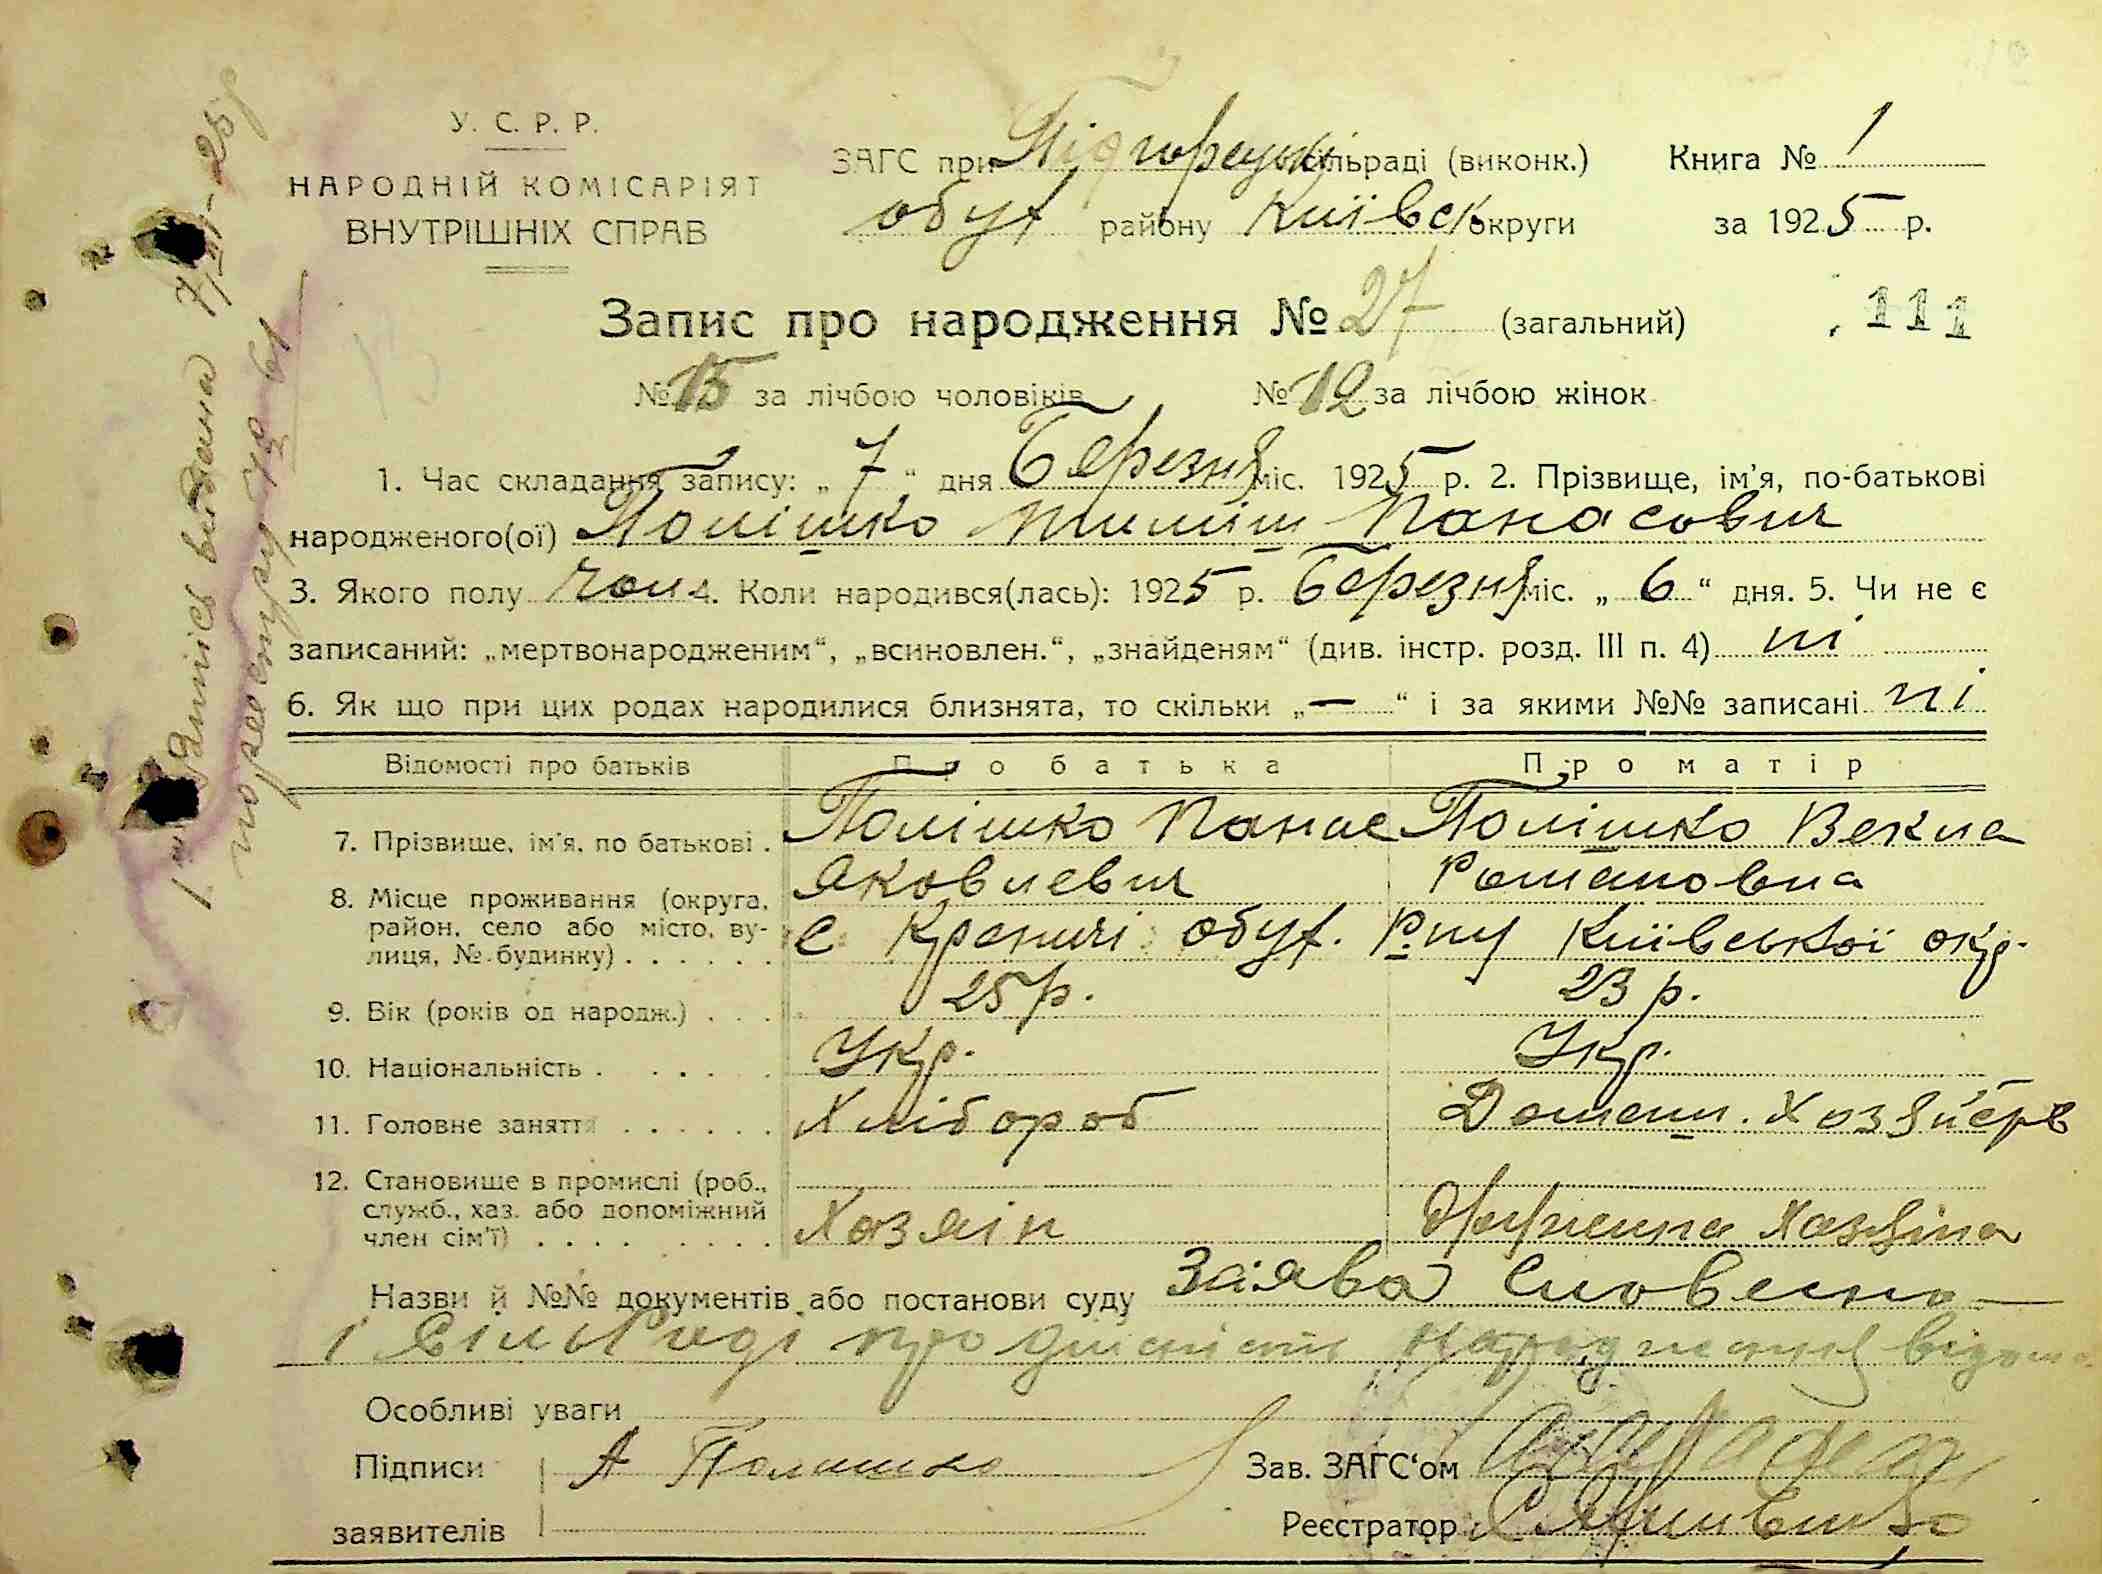 У. С. Р. Р.
НАРОДНІЙ КОМІСАРІЯТ
ВНУТРІШНІХ СПРАВ
ЗАГС при Підгорецькі сільраді (виконк.) Книга № 1
обух району Київськ округи за 1925 р.
Запис про народження № 27 (загальний) 111
№ 15 за лічбою чоловіків № 12 за лічбою жінок
1. Час складання запису: „ 7 “ дня Березня міс. 1925 р. 2. Прізвище, ім'я, по-батькові
народженого(ої) Полішко Панасович
3. Якого полу чол 4. Коли народився(лась): 1925 р. Березня міс. „ 6 “ дня. 5. Чи не є
записаний: „мертвонародженим“, „всиновлен.“, „знайденям“ (див. інстр. розд. III п. 4) ні
6. Як що при цих родах народилися близнята, то скільки „ — “ і за якими №№ записані ні
Відомості про батьків Про батька Про матір
7. Прізвище, ім'я, по батькові . Полішко Панас Полішко Векла
Яковлевич Романовна
8. Місце проживання (округа,
район, село або місто, ву-
лиця, № будинку) . . . . . . с Креничі обух. Р-ну Київської окр.
9. Вік (років од народж.) . . . 25 р. 23 р.
10. Національність . . . . . Укр. Укр.
11. Головне заняття . . . . . . Хлібороб Домашн.
12. Становище в промислі (роб.,
служб., хаз. або допоміжний
член сім'ї) . . . . . . . . . Хозяін Хозяіна
Назви й №№ документів або постанови суду Заява Словесно
і СільРаді про народження відом
Особливі уваги
Підписи А Полишко Зав. ЗАГС'ом
заявителів Реєстратор
Випись видана
по реестру